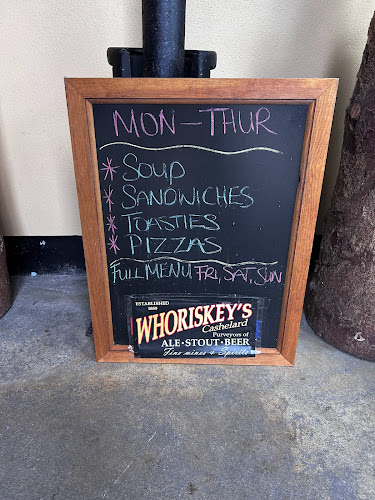 MON-THUR
* SOUP
* SANDWICHES
* TOASTIES
* PIZZAS
FULL MENU FRI, SAT, SUN
ESTABLISHED
WHORISKEY'S
Cashelard
Purveyors of
ALE·STOUT·BEER
Fine wines & Spirits